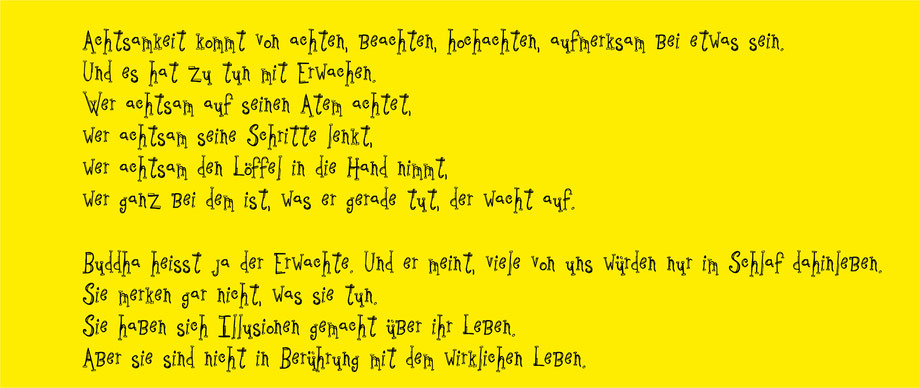 Achtsamkeit kommt von achten, beachten, hochachten, aufmerksam bei etwas sein.
Und es hat zu tun mit Erwachen.
Wer achtsam auf seinen Atem achtet,
wer achtsam seine Schritte lenkt,
wer achtsam den Löffel in die Hand nimmt,
wer ganz bei dem ist, was er gerade tut, der wacht auf.

Buddha heisst ja der Erwachte. Und er meint, viele von uns würden nur im Schlaf dahinleben.
Sie merken gar nicht, was sie tun.
Sie haben sich Illusionen gemacht über ihr Leben.
Aber sie sind nicht in Berührung mit dem wirklichen Leben.